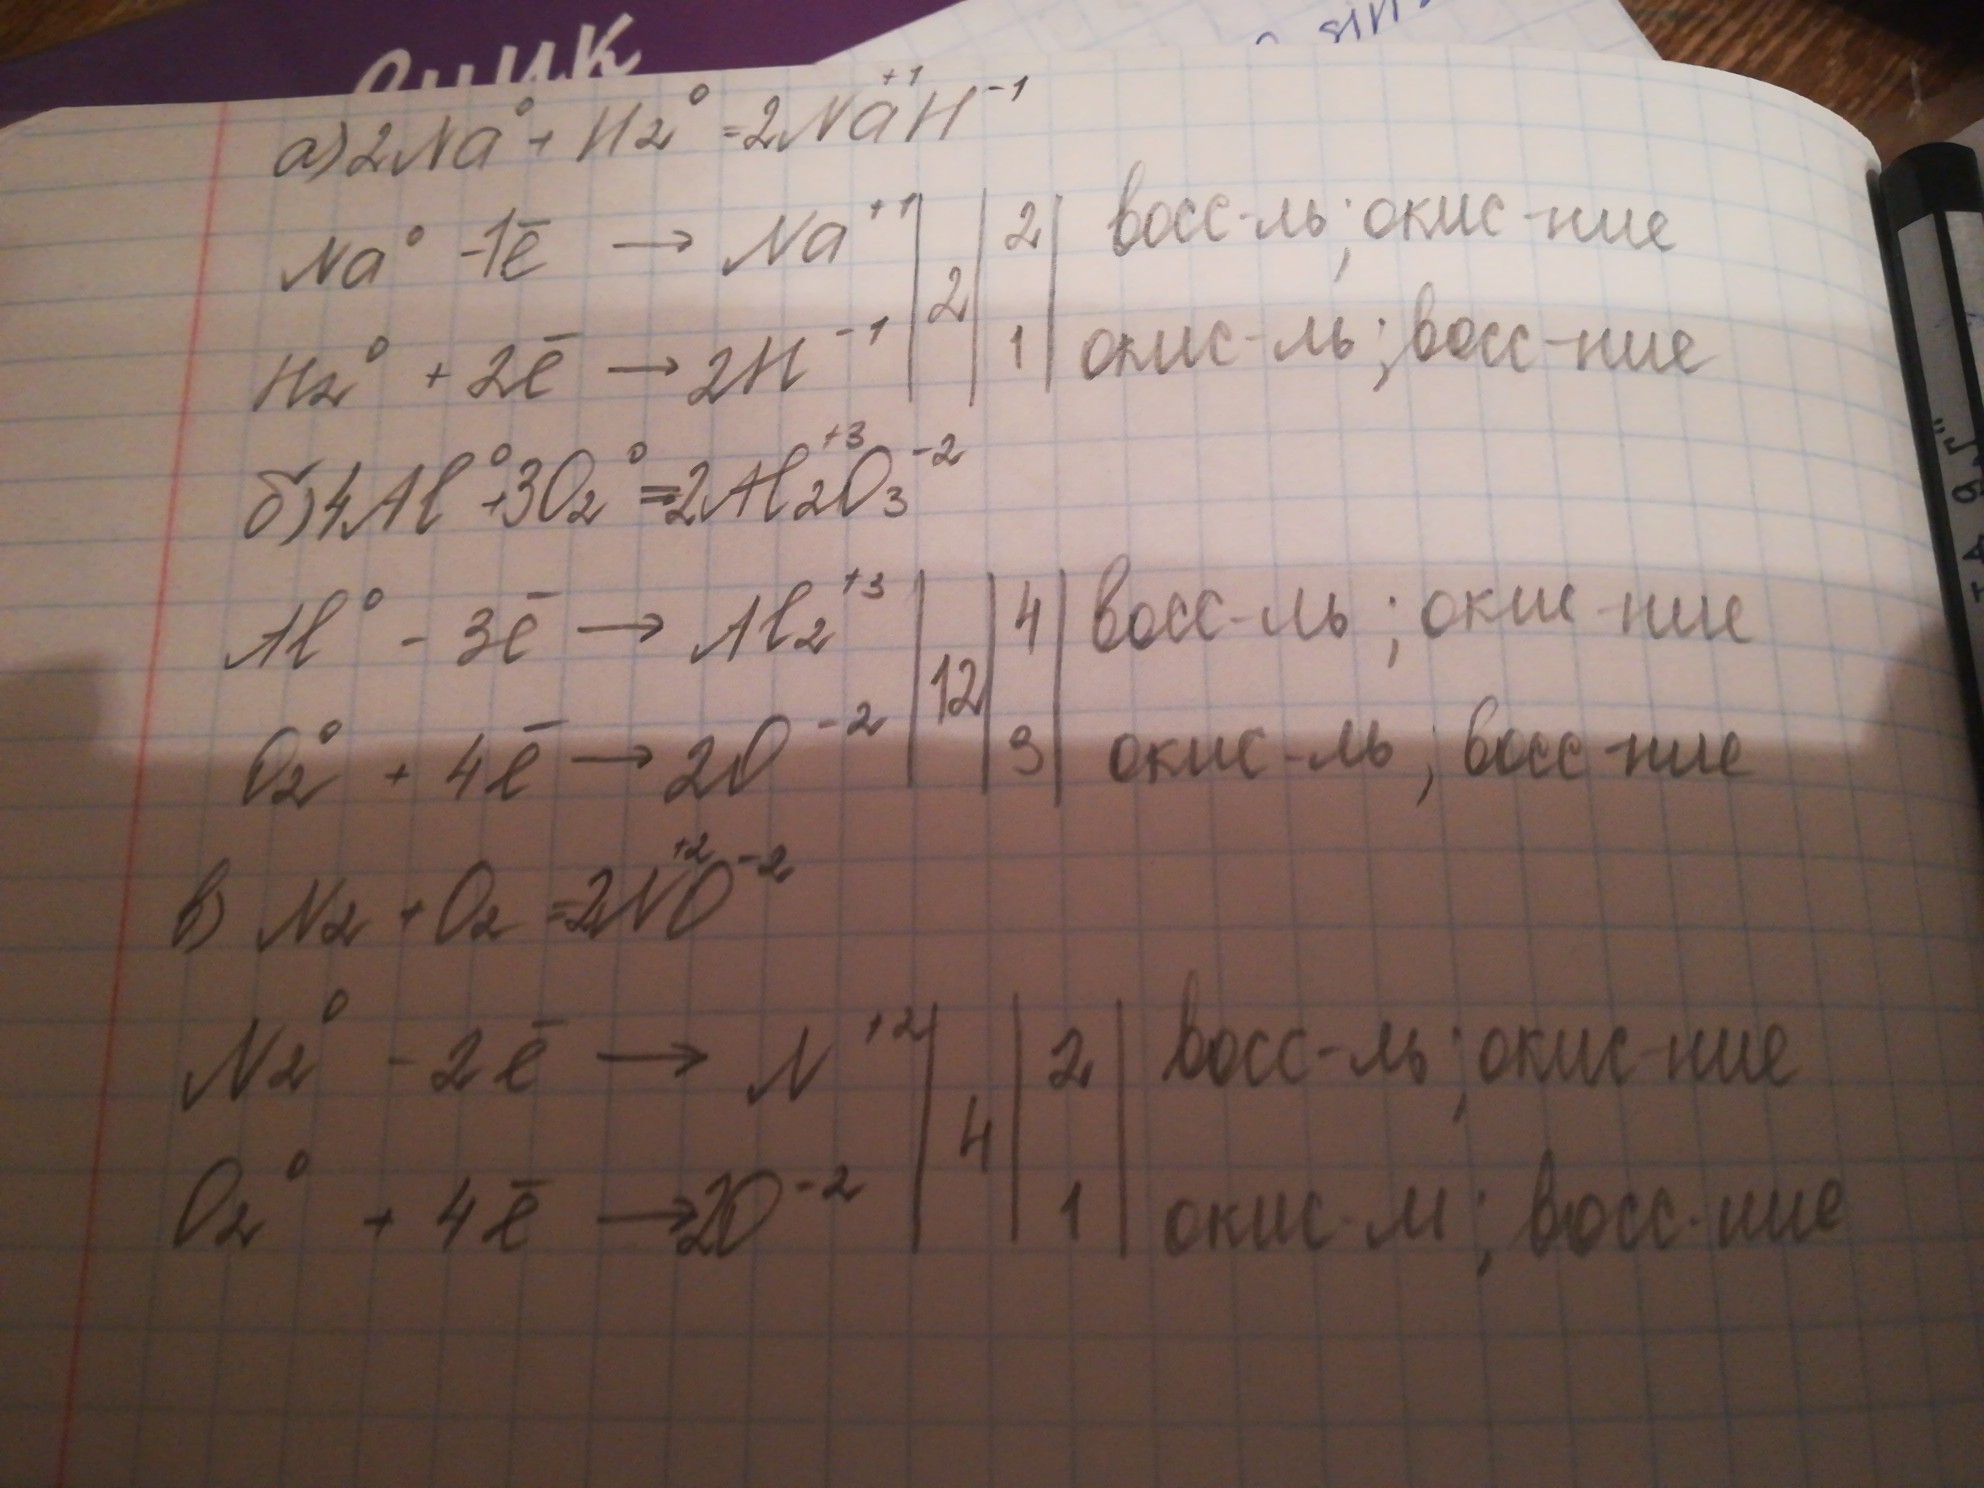 вник
а) 2Na⁰ + H₂⁰ = 2Na⁺¹H⁻¹
Na⁰ -1ē → Na⁺¹ | | 2 | восс-ль; окис-ние
2
H₂⁰ + 2ē → 2H⁻¹ | | 1 | окис-ль; восс-ние
б) 4Al⁰ + 3O₂⁰ = 2Al₂⁺³O₃⁻²
Al⁰ - 3ē → Al₂⁺³ | | 4 | восс-ль; окис-ние
12
O₂⁰ + 4ē → 2O⁻² | | 3 | окис-ль; восс-ние
в) N₂ + O₂ = 2N⁺²O⁻²
N₂⁰ - 2ē → N⁺² | | 2 | восс-ль; окис-ние
4
O₂⁰ + 4ē → 2O⁻² | | 1 | окис-л; восс-ние